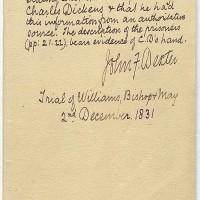 Charles Dickens & that he had
this information from an authoritative
source. The description of the prisoners
(pp. 21-22) bears evidence of C.D's hand.
John F. Dexter
Trial of Williams, Bishop & May
2nd December. 1831